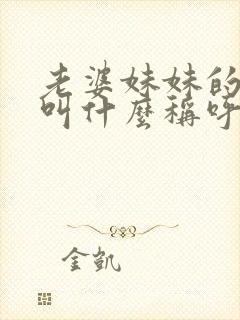 老婆妹妹的
叫什麼稱呼
金凱